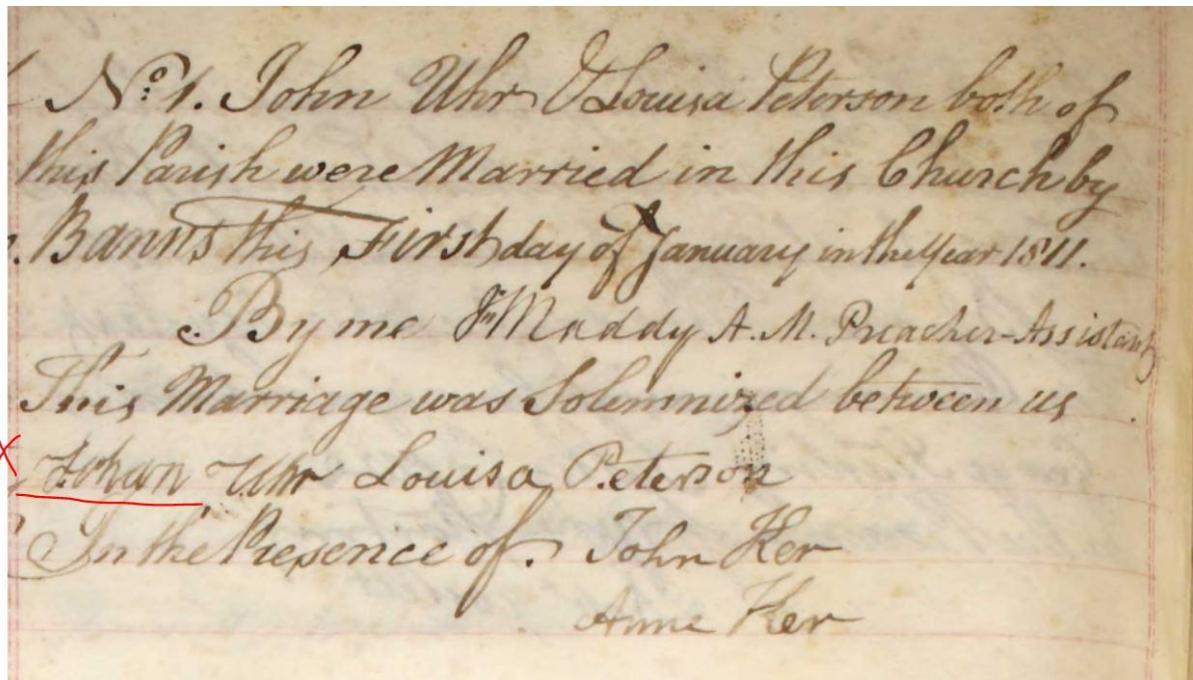 No. 1. John Uhr & Louisa Peterson both of
this Parish were Married in this Church by
Banns this First day of January in the Year 1811.
By me Maddy A. M. Preacher-Assistant
This Marriage was Solemnized between us
Johan Uhr Louisa Peterson
In the Presence of. John Ker
Anne Ker